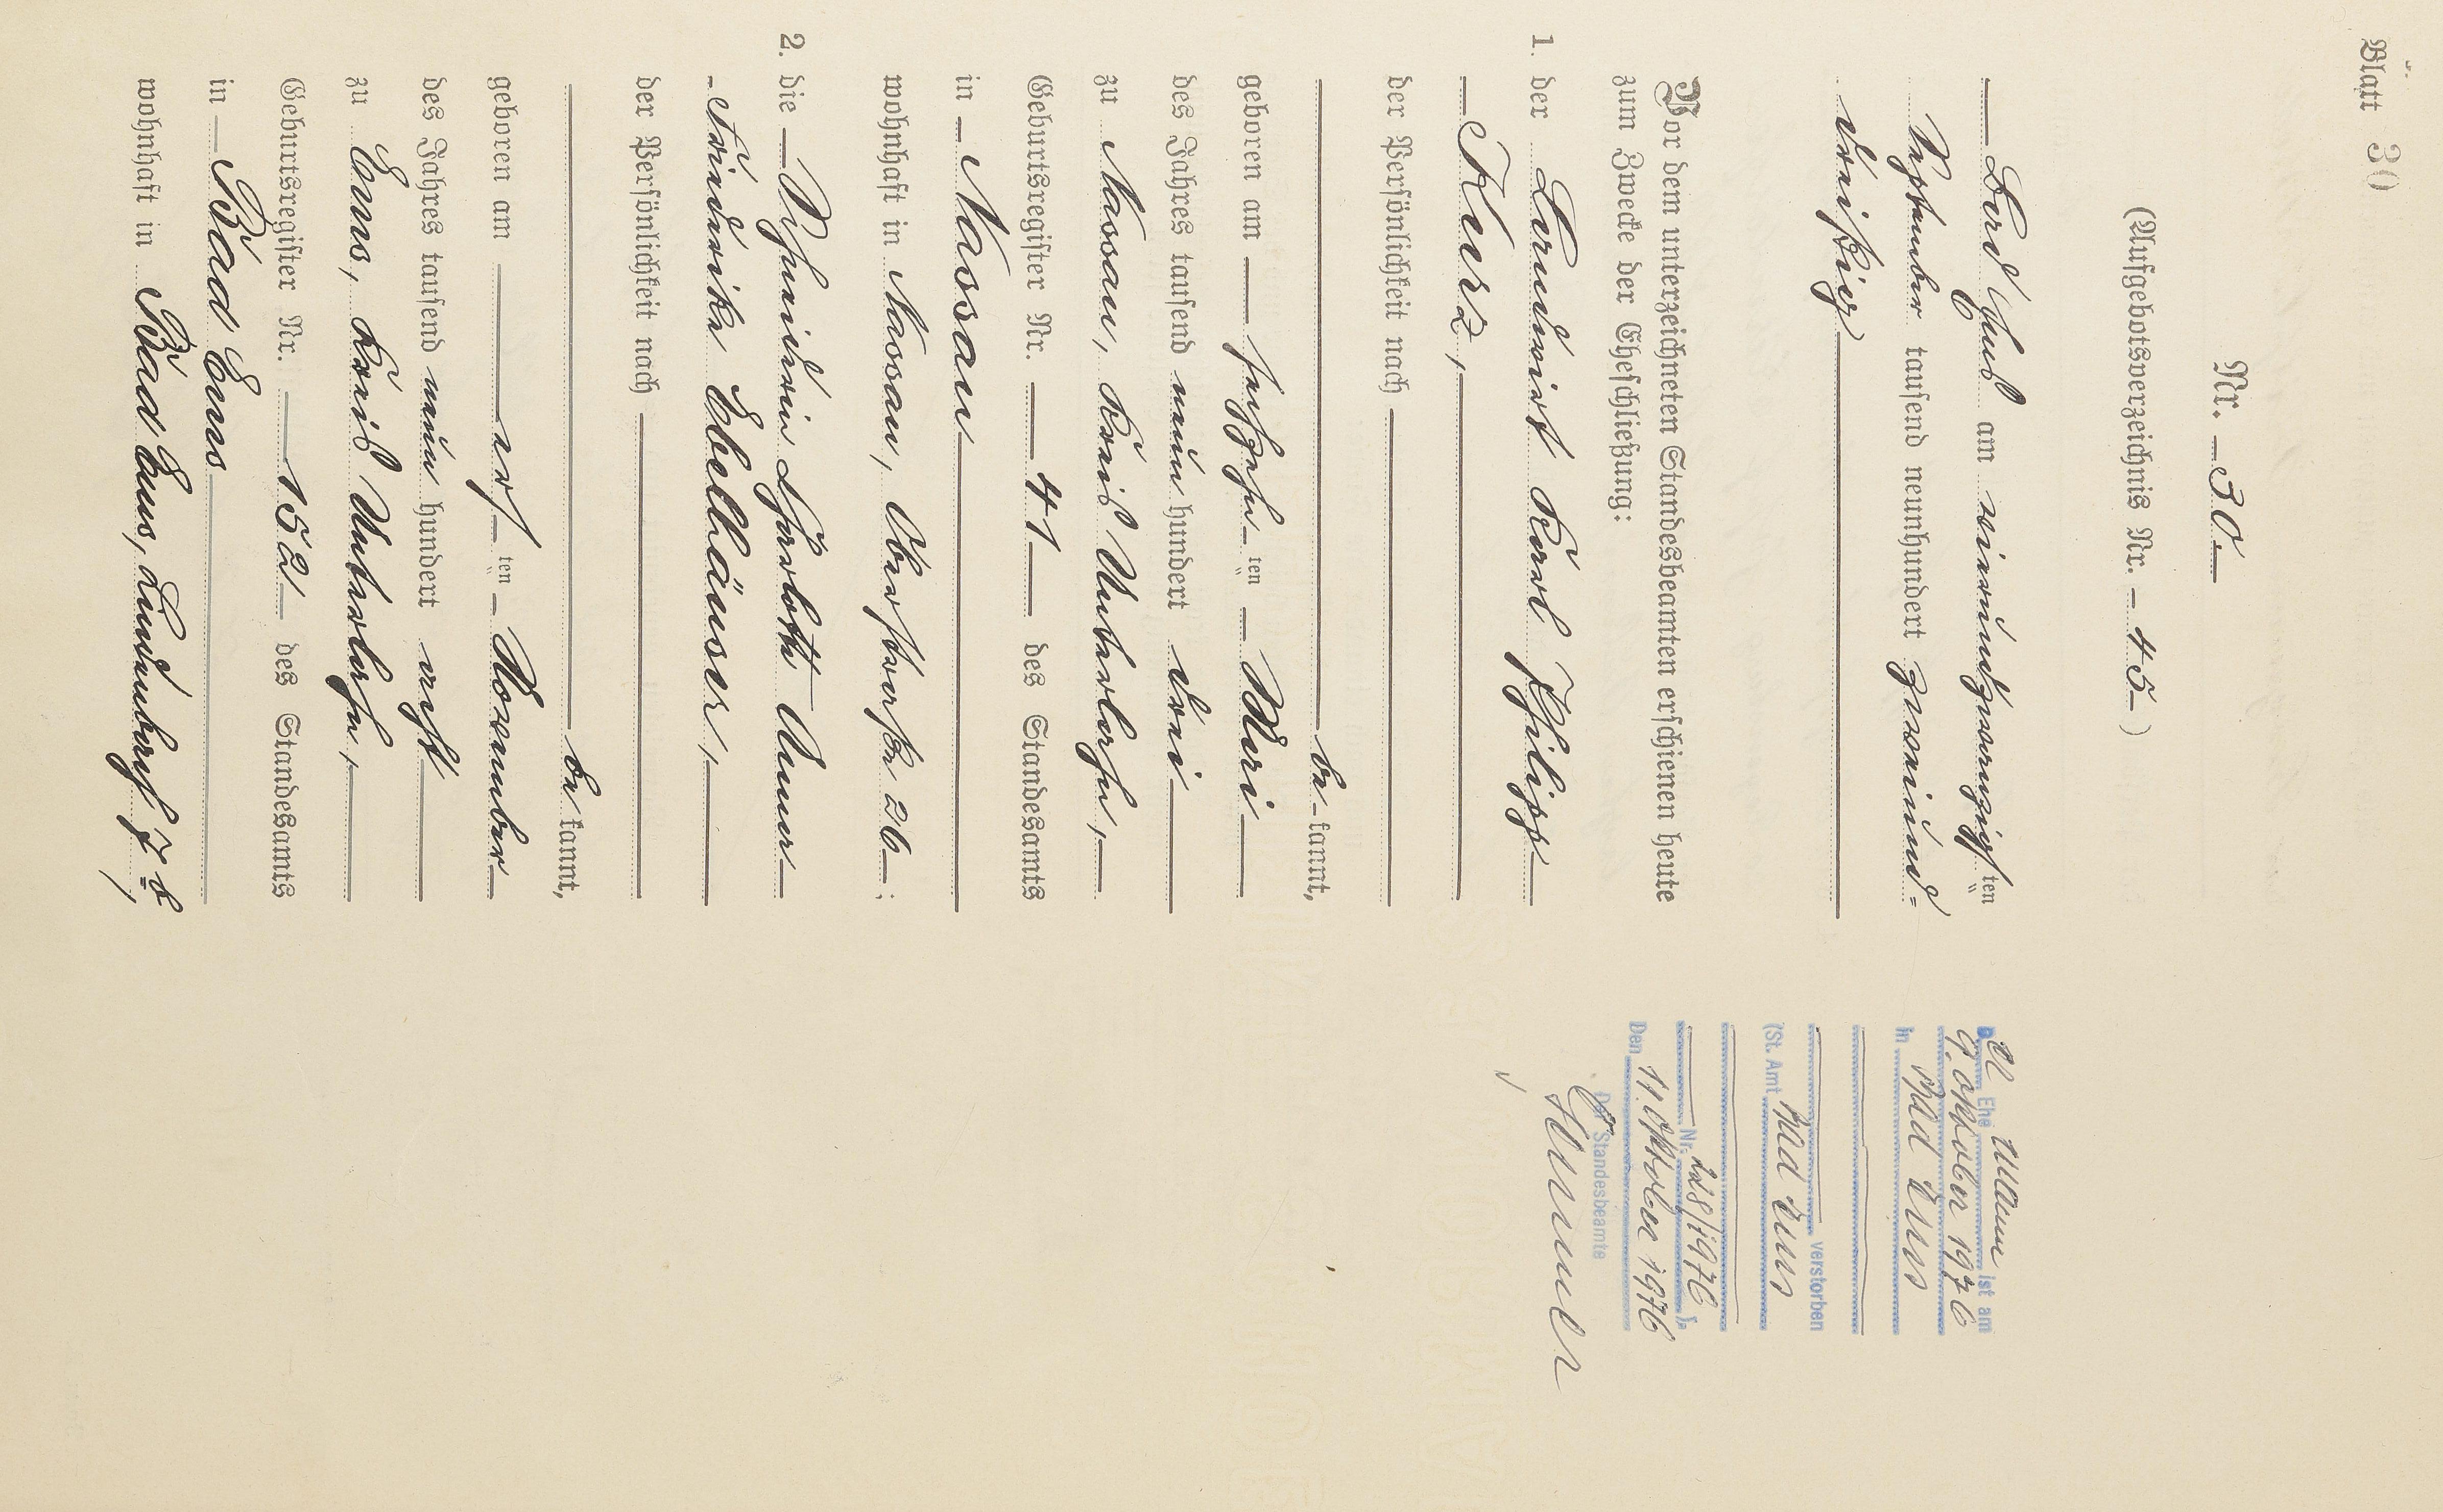 Blatt 30
Nr. 30.
(Aufgebotsverzeichnis Nr. 45)
Bad Ems am vierundzwanzigsten
September tausend neunhundert zweiund=
dreißig
Vor dem unterzeichneten Standesbeamten erschienen heute
zum Zwecke der Eheschließung:
1. der Karl Philipp
Kurz,
der Persönlichkeit nach
be kannt,
geboren am sechszehn ten Mai
des Jahres tausend neun hundert drei
zu Nassau, Kreis Unterlahn,
Geburtsregister Nr. 41 des Standesamts
in Nassau
wohnhaft in Nassau, Obernhoferstr. 26;
2. die Charlotte Anna
Friederike Ebelhäuser,
der Persönlichkeit nach
be kannt,
geboren am ach ten November
des Jahres tausend neun hundert acht
zu Ems, Kreis Unterlahn,
Geburtsregister Nr. 152 des Standesamts
in Bad Ems
wohnhaft in Bad Ems, Lindenbach 7b,
Der Ehe Mann ist am
9. Oktober 1976
in Bad Ems
verstorben
(St. Amt Bad Ems
Nr. 128/1976).
Den 11. Oktober 1976
Der Standesbeamte